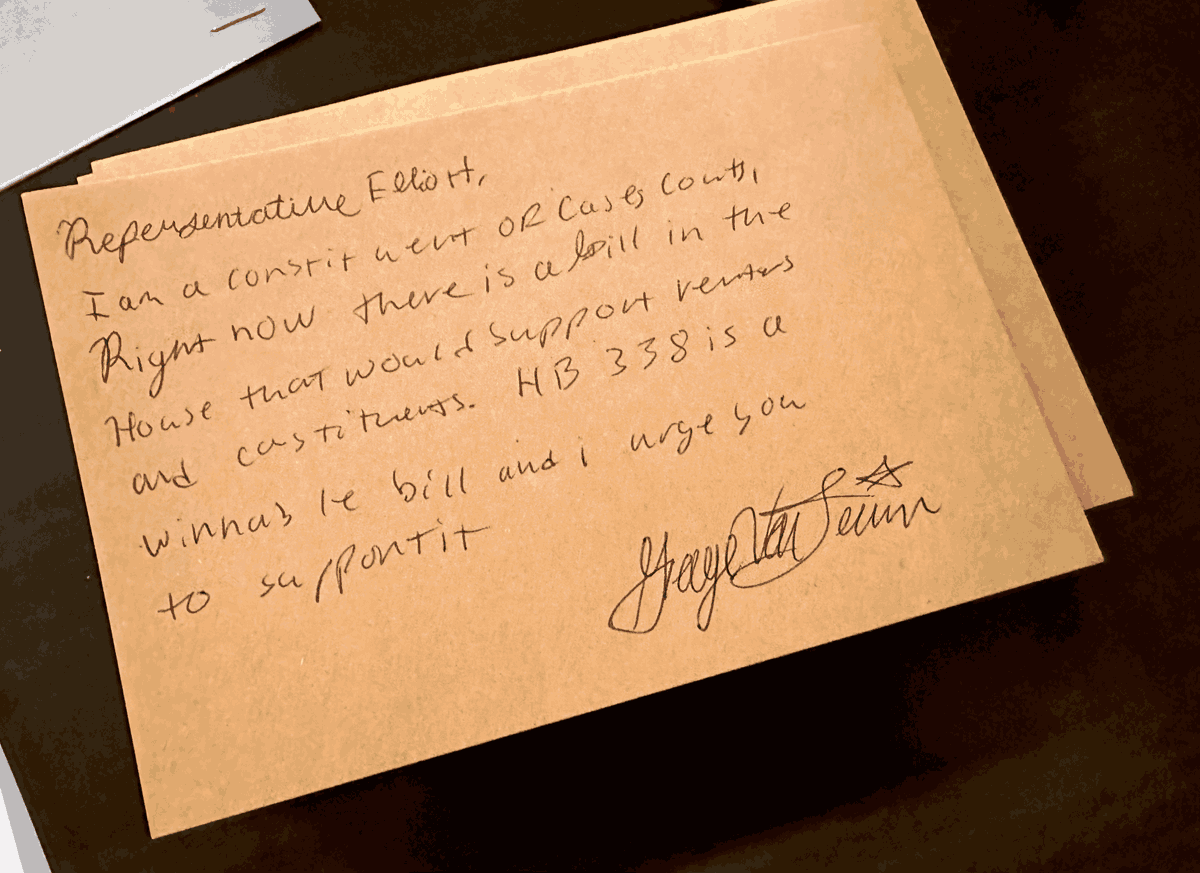 Repersentative Elliott,
I am a constituent OR Casey County,
Right now there is a bill in the
House that would support renters
and castituents. HB 338 is a
winnable bill and i urge you
to support it